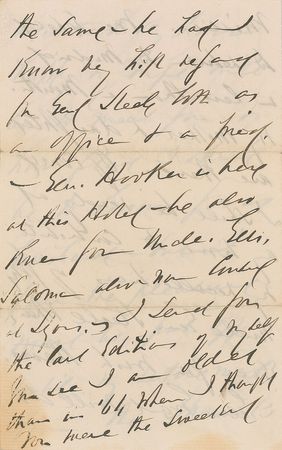 the same – he had
know my high regard
for Genl Steele both as
an officer & a friend.
– Gen. Hooker is here
at this Hotel – he also
knew your Uncle. Gen.
Saloma also – now Consul
at Lyons. – I send you
the last Edition of myself
You see I am older
than in '64 when I thought
You were the sweetest